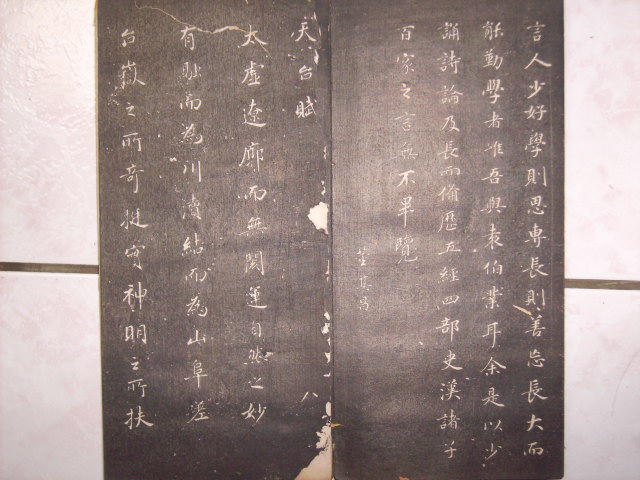 言人少好學則思專長則善忘長大而
能勤學者唯吾與袁伯業耳余是以少
誦詩論及長而備歷五經四部史漢諸子
百家之言無不畢覽
董其昌
天台賦
太虛遼廓而無閡運自然之妙
有融而為川瀆結而為山阜嗟
台嶽之所奇挺實神明之所扶
八